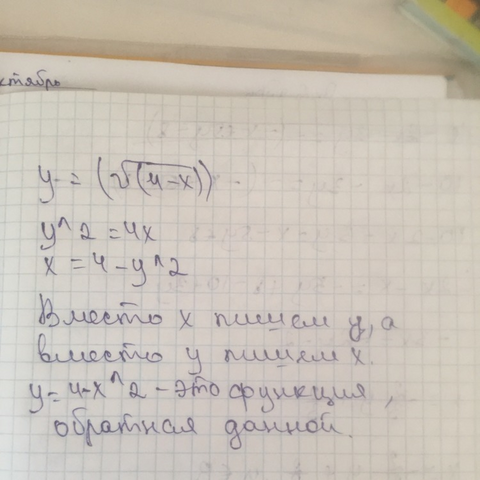 ктябрь
y = (√(4-x))
y^2 = 4x
x = 4 - y^2
Вместо x пишем y, а
вместо y пишем x.
y = 4-x^2 - это функция,
обратная данной.